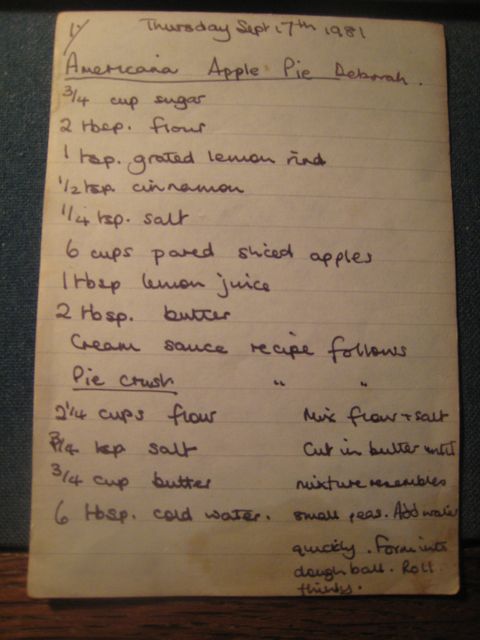 1/
Thursday Sept 17th 1981
Americana Apple Pie Deborah.
3/4 cup sugar
2 tbsp. flour
1 tsp. grated lemon rind
1/2 tsp cinnamon
1/4 tsp. salt
6 cups pared sliced apples
1 tbsp lemon juice
2 tbsp. butter
Cream sauce recipe follows
Pie crust " "
2 1/4 cups flour
3/4 tsp salt
3/4 cup butter
6 tbsp. cold water.
Mix flour + salt
Cut in butter until
mixture resembles
small peas. Add water
quickly. Form into
dough ball. Roll
thinly.